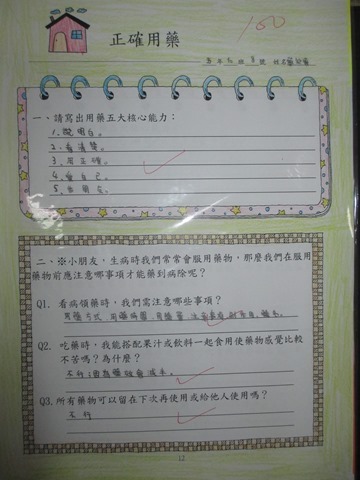 100
正確用藥
一、請寫出用藥五大核心能力：
1.說明白。
2.看清楚。
3.用正確。
4.愛自己。
5.
二、※小朋友，生病時我們常常會服用藥物，那麼我們在服用
藥物前應注意哪事項才能藥到病除呢？
Q1. 看病領藥時，我們需注意哪些事項？
用藥方式 用藥時間 用藥量
Q2. 吃藥時，我能搭配果汁或飲料一起食用使藥物感覺比較
不苦嗎？為什麼？
不行 因為藥效會減半。
Q3.所有藥物可以留在下次再使用或給他人使用嗎？
不行
12